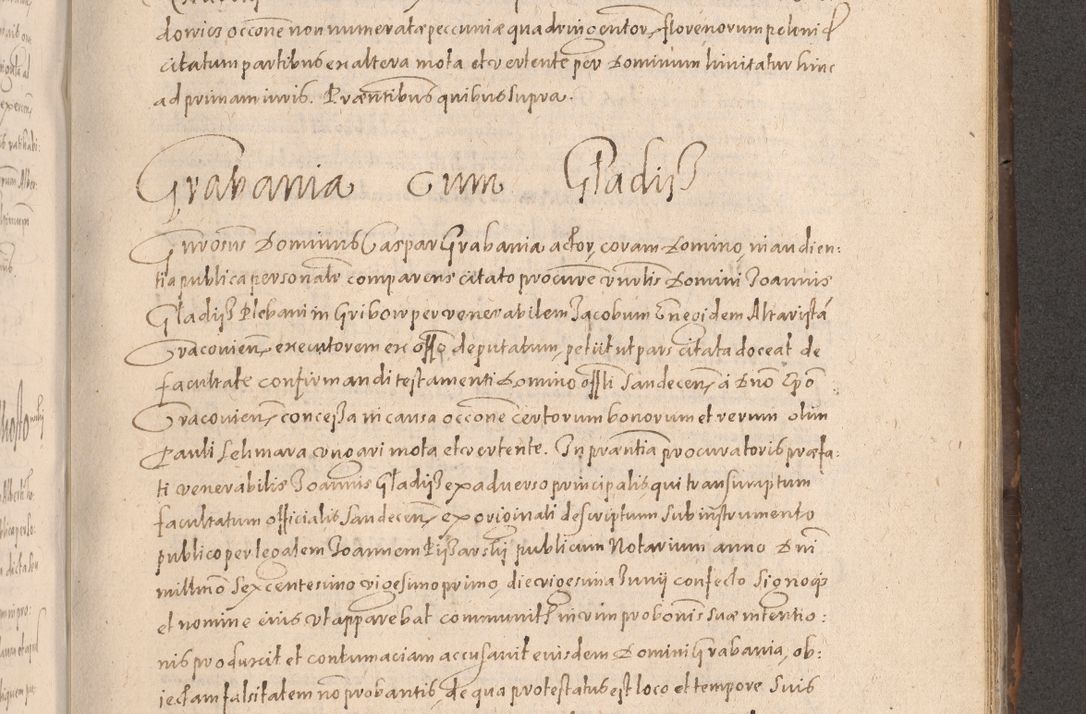 dowies occone non numeratæ peccuniæ quadringentor, florenorum poloni
citatum partibus ex altera mota et vertente per Dominum limitatur hinc
ad primam iuris. Præntibus quibus supra.
Grabania cum Gładijsz
Gnrosus Dominus Caspar Grabania actor, coram Domino, in audien:
tia publica personalr comparens citato procurē vnrłis Domini Joannis
Gładijsz Plebani in Gribow per venerabilem Jacobum Altaristā
Cracouien, executorem ex offo deputatum, petijt ut pars citata doceat de
facultate confirmandi testamenti Domino offłi Sandecen, á Dnō Epō
Cracouien, concessa in causa occone certorum bonorum et rerum olim
Pauli Lehmara vngari mota et vertente. In præntia procuratoris præfa:
ti venerabilis Joannis Gładijsz ex aduerso principalis qui transumptum
facultatum officialis Sandecen, ex originali descriptum sub instrumento
publico per legalem Joannem publicum Notarium anno Dnī
millmō sexcentesimo vigesimo primo, die vigesima Junij confecto signoq
et nomine eius vt apparebat communitū in vim probonis suæ intentio:
nis produxit et contumaciam accusauit eiusdem Domini Grabania, ob:
iectam falsitatem nō probantis, de qua protestatus est loco et tempore suis